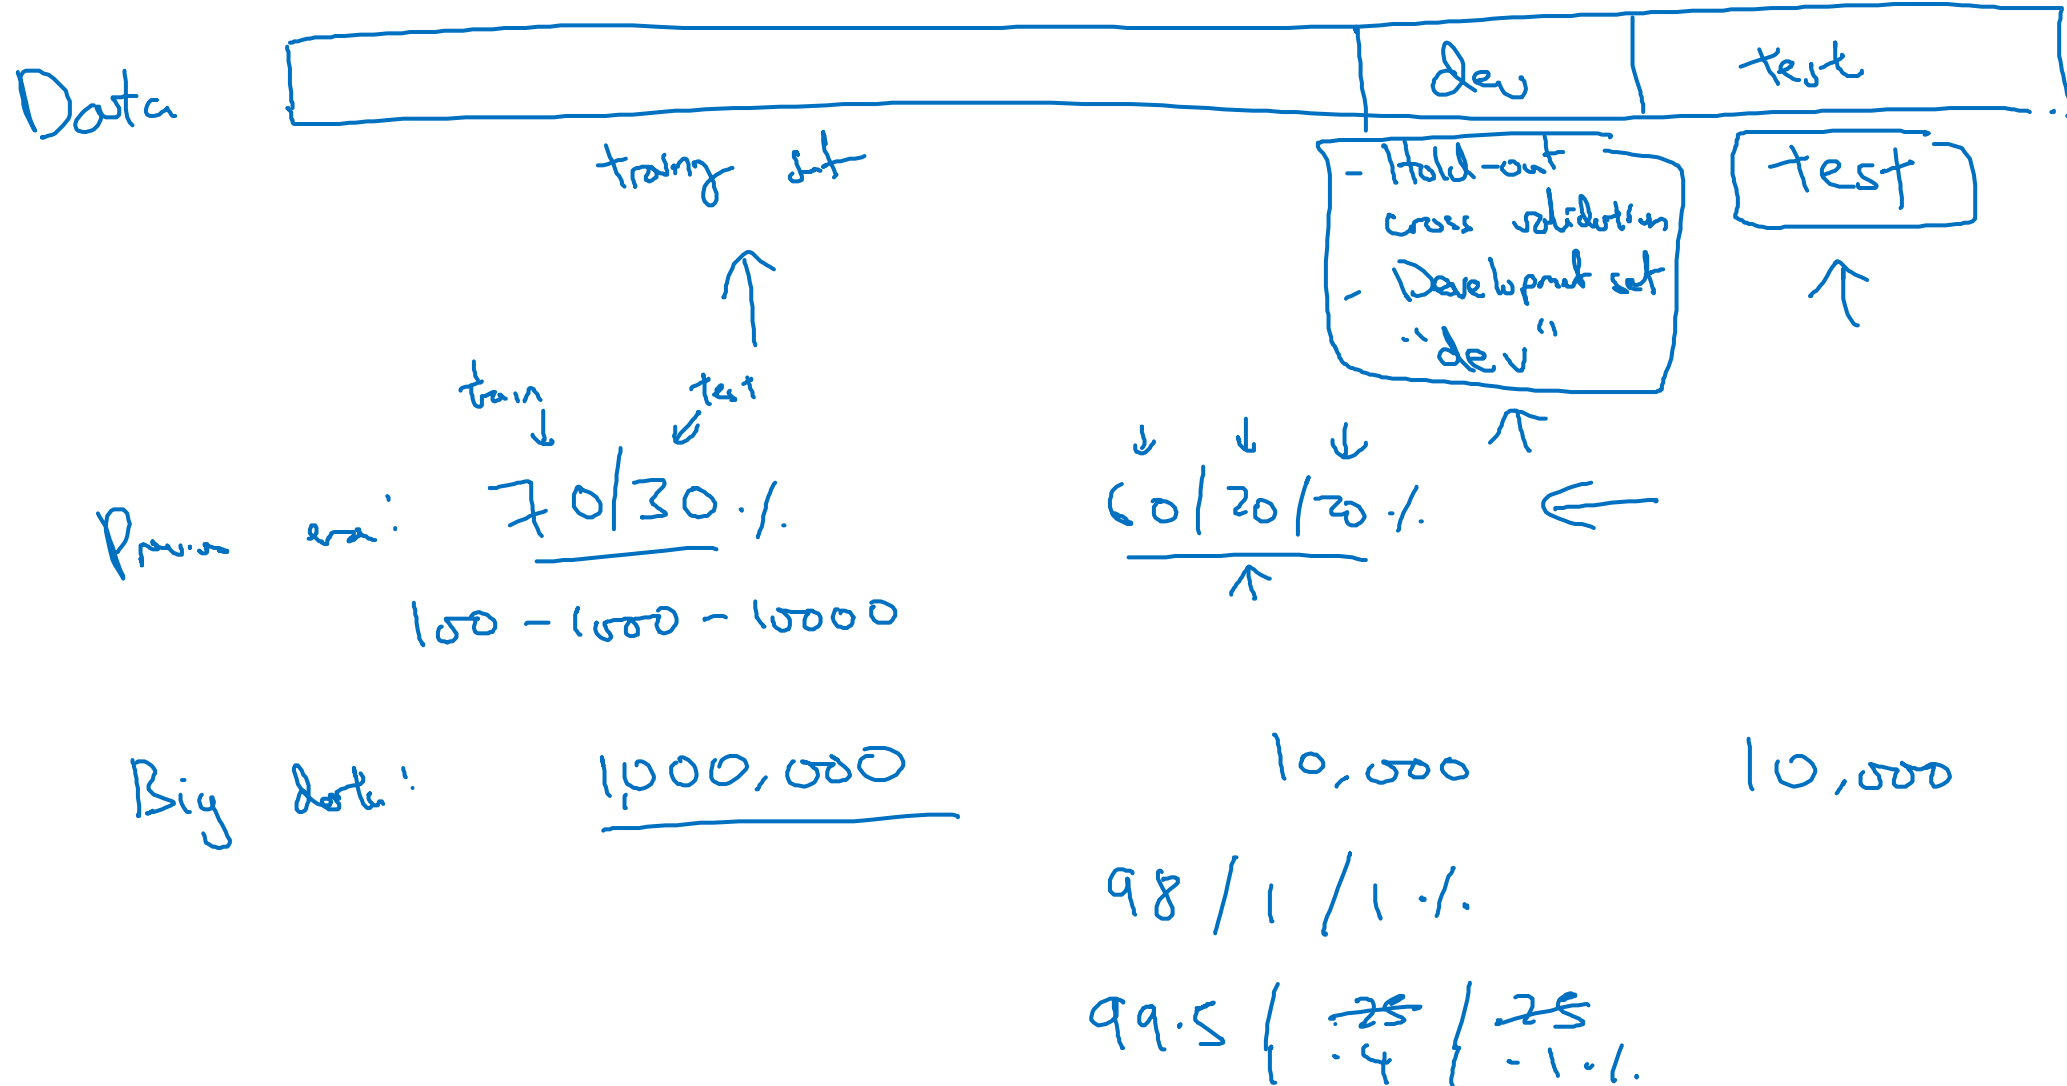 Data dev test
training set
- Hold-out
cross validation
- Development set
"dev"
test
train test
Previous era: 70/30 % 60/20/20 %
100 - 1000 - 10000
Big data: 1,000,000 10,000 10,000
98 / 1 / 1 %
99.5 / .25 / .25
.4 .1 %